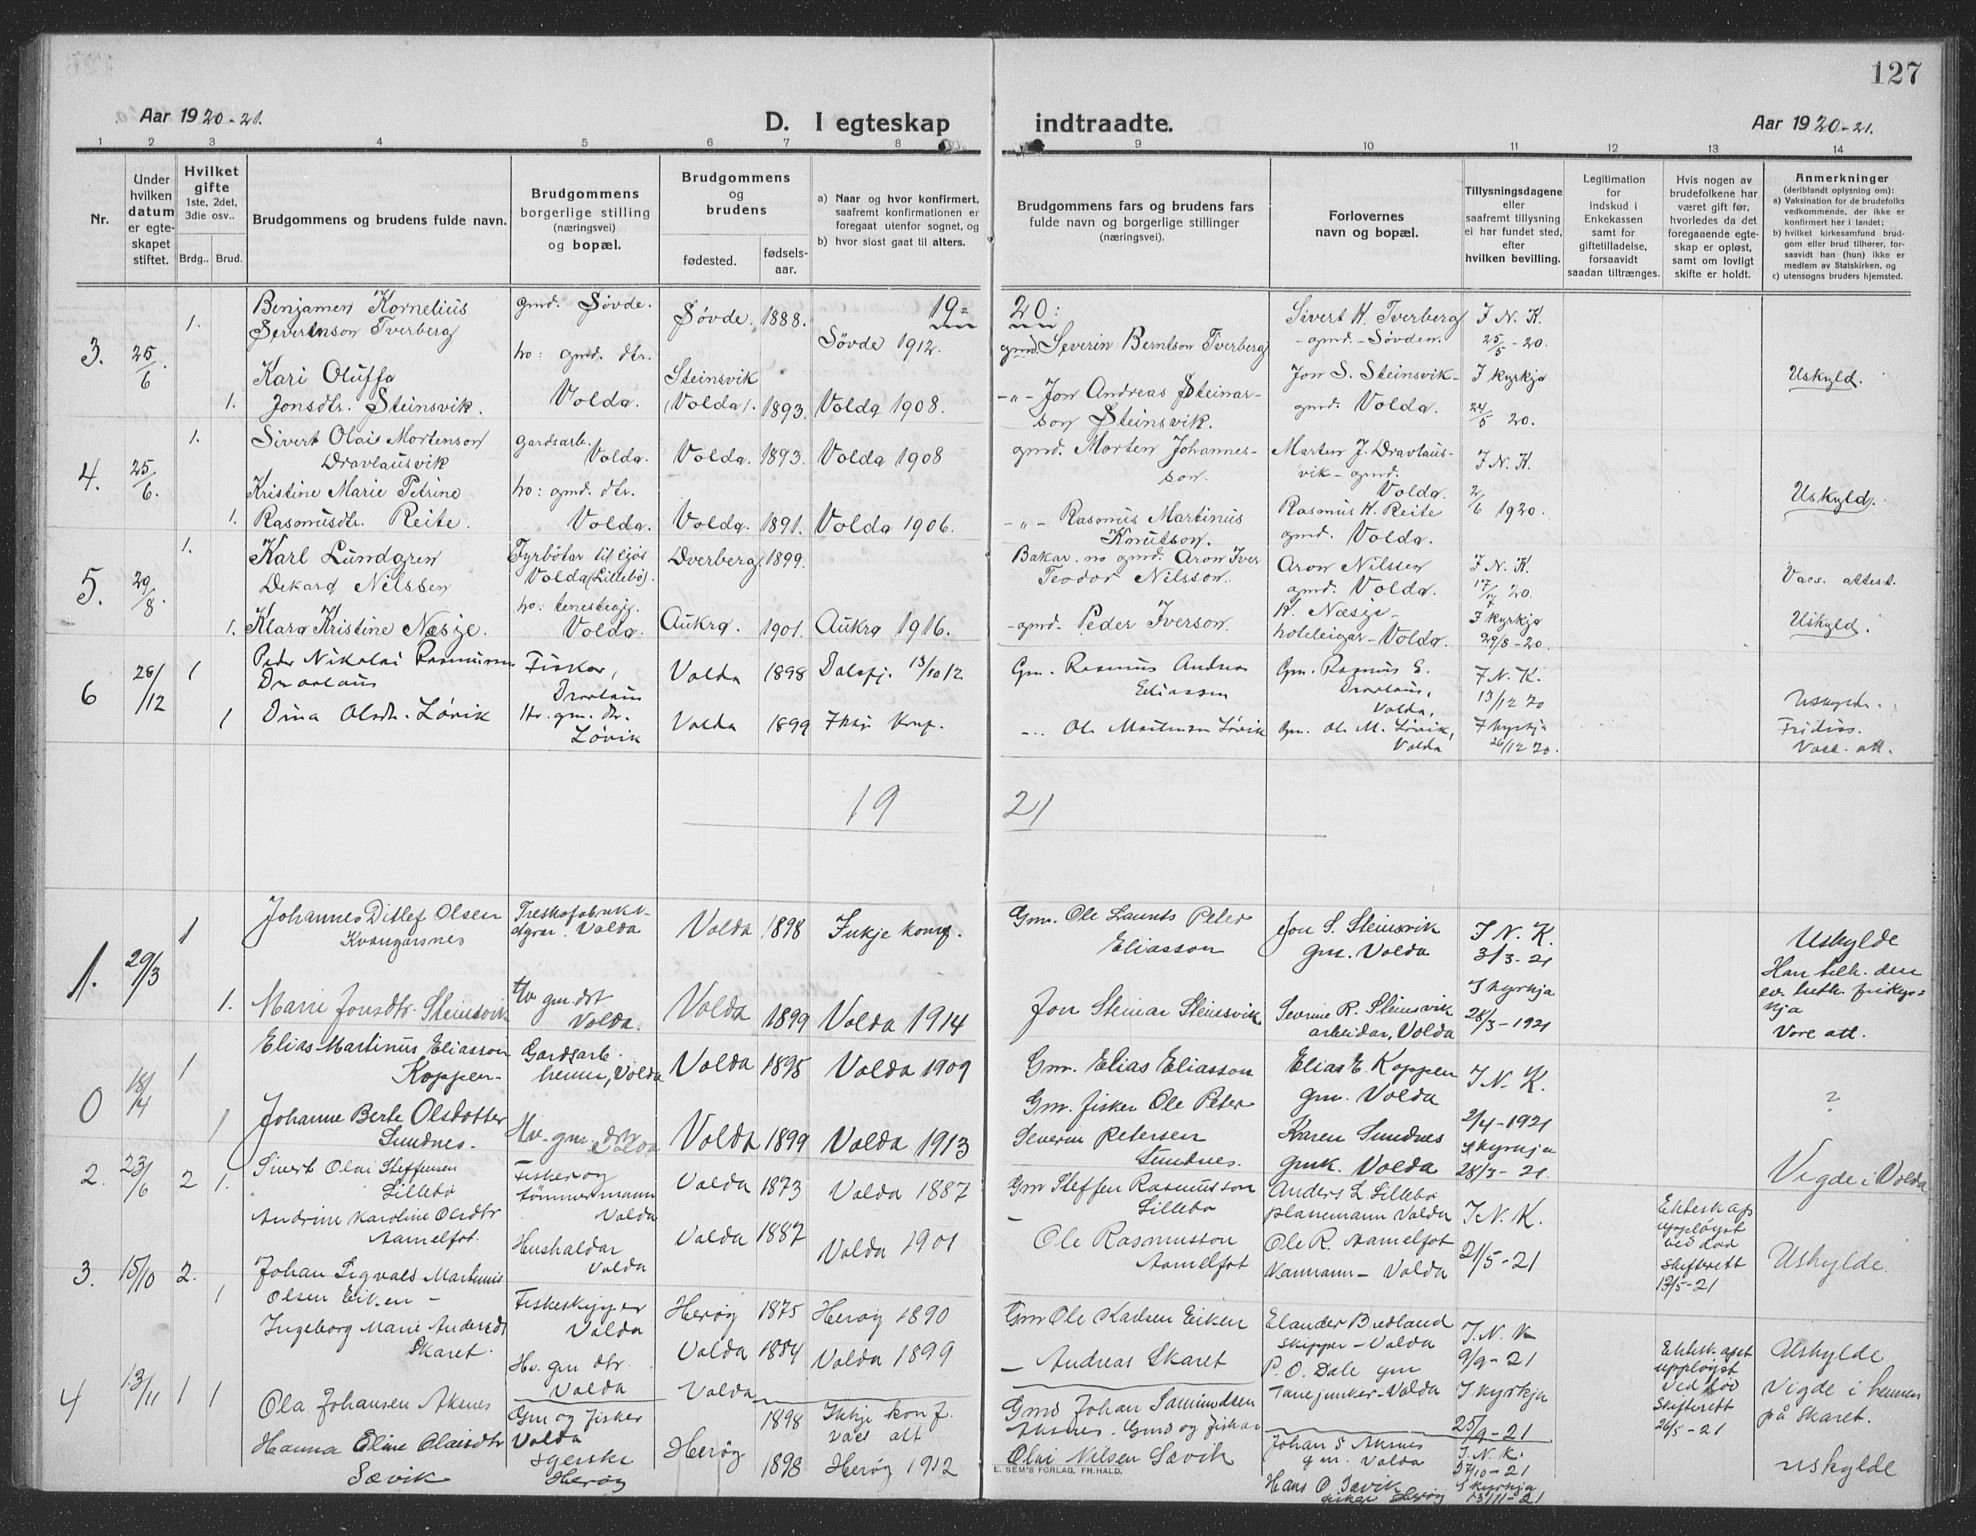 127
Aar 1920-21.
D. I egteskap indtraadte.
Aar 1920-21.
1 2 3 4 5 6 7 8 9 10 11 12 13 14
Nr.
Under hvilken datum er egteskapet stiftet.
Hvilket gifte 1ste, 2det, 3die osv..
Brdg.. Brud.
Brudgommens og brudens fulde navn.
Brudgommens borgerlige stilling (næringsvei) og bopæl.
Brudgommens og brudens
fødested.
fødsels-aar.
a) Naar og hvor konfirmert, saafremt konfirmationen er foregaat utenfor sognet, og
b) hvor slost gaat til alters.
Brudgommens fars og brudens fars fulde navn og borgerlige stillinger (næringsvei).
Forlovernes navn og bopæl.
Tillysningsdagene eller saafremt tillysning ei har fundet sted, efter hvilken bevilling.
Legitimation for indskud i Enkekassen samt for giftetilladelse, forsaavidt saadan tiltrænges.
Hvis nogen av brudefolkene har været gift før, hvorledes da det foregaaende egteskap er opløst, samt om lovligt skifte er holdt.
Anmerkninger (deriblandt oplysning om):
a) Vaksination for de brudefolks vedkommende, der ikke er konfirmert her i landet;
b) hvilket kirkesamfund brudgom eller brud tilhører, forsaavidt han (hun) ikke er medlem av Statskirken, og
c) utensogns bruders hjemsted.
19= 20:
3. 25/6 1. Benjamen Kornelius Severinson Tverberg
gmd. Søvde. Søvde. 1888. Søvde 1912.
gmd. Severin Berntson Tverberg
Sivert H. Tverberg gmd. - Søvden.
I N. K. 25/5 - 20.
1. Kari Oluffa Jonsdtr. Steinsvik.
ho: gmd. dtr. Volda.
Steinsvik (Volda). 1893. Volda 1908.
-"- Jon Andreas Steinarson Steinsvik.
Jon S. Steinsvik - gmd. Volda.
I kyrkja 24/5 20.
Uskyld.
4. 25/6. 1. Sivert Olais Mortenson Dravlausvik
gardsarb. Volda. Volda. 1893. Volda 1908
gmd. Morten Johannesson.
Morten J. Dravlausvik - gmd. Volda.
I N. K. 2/6 1920.
1. Kristine Marie Petrine Rasmusdtr. Reite.
ho: gmd. dtr. Volda. Volda. 1891. Volda 1906.
-"- Rasmus Martinus Knutson.
Rasmus H. Reite gmd. Volda.
Uskyld.
5. 29/8. 1. Karl Lundgren Dekard Nilssen
Fyrbøtar til sjøs Volda (Lillebø). Dverberg. 1899.
Bakar no gmd. Aron Iver Teodor Nilsson.
Aron Nilssen gmd. Volda.
I N. K. 17/7 20.
Vacs. attest.
1. Klara Kristine Næsje.
ho: tenestegj. Volda. Aukra. 1901. Aukra 1916.
-gmd- Peder Iverson.
K. Næsje - hoteleigar - Volda.
I kyrkja 29/8 - 20.
Uskyld.
6 26/12 1 Peder Nikolai Rasmussen Dravlaus
Fiskar, Dravlaus Volda 1898 Dalsfj. 13/10 12
Gm. Rasmus Andreas Eliassen
Gm. Rasmus E. Dravlaus, Volda.
I N. K. 13/12 20
Uskylde.
1 Dina Olsdtr. Løvik
Ho. gm. dtr. Løvik Volda 1899 Ikkje konf.
-"- Ole Martinusen Løvik
Gm. Ole M. Løvik, Volda
I kyrkja 26/12 20.
Fridøs.
Vacc. att.
19 21
1. 29/3 1 Johannes Ditlef Olsen Kvangarsnes
Treskofabrikkstyrar. Volda Volda 1898 Ikkje konf.
Gm. Ole Lauritz Peter Eliasson
Jon S. Steinsvik gm. Volda
I N. K. 3/3-21
Uskylde
Han tilh. den ev. luth. frikyrkja
Vacc att.
1. Marie Jonsdtr. Steinsvik
Hv gm. dtr Volda. Volda 1899 Volda 1914
Jon Steinar Steinsvik
Severine R. Steinsvik arbeidar, Volda
I kyrkja 28/3-1921
0 18/14 1 Elias Martinus Eliasson Koppen-
Gardsarb. heime, Volda Volda 1895 Volda 1909
Gm. Elias Eliasson
Elias E. Koppen gm. Volda
I N. K. 2/4-1921
?
1 Johanne Berte Olsdotter Sundnes.
Hv. gm. dtr Volda Volda 1899 Volda 1913
Gm. fisker Ole Peter Severin Petersen Sundnes.
Karen Sundnes gmk. Volda
I kyrkja 28/3-21.
2. 23/6 2 1. Sivert Olai Steffensen Lillebø
Fisker og tømmermann Volda Volda 1873 Volda 1887
Gm Steffen Rasmusson Lillebø
Anders L Lillebø Volda
I N. K. 21/5-21
Ekteskap uppløyst ved død skifterett 13/5-21
Vigde i Volda
Andrine Karoline Olsdtr Aamelfot.
Hushaldar Volda Volda 1887 Volda 1901
- Ole Rasmusson Aamelfot
Ole R. Aamelfot Kaarmann - Volda
Uskylde.
3. 15/10 2. 1 Johan Sigvald Martinus Olsen Eiken -
Fiskeskipper Volda Herøy 1875 Herøy 1890
Gm Ole Karlsen Eiken
Elander Bredland skipper - Volda
I. N. K 9/9-21
Ekteskapet uppløyst ved død Skifterett 26/5-21
Uskylde
Vigde i heimen på Skaret.
Ingeborg Marie Andersdtr Skaret.
Hv. gm dtr. Volda Volda 1884 Volda 1899
- Andreas Skaret
P. O. Dale gm - Volda
I kyrkja 25/9-21
4 13/11 1 1 Ola Johansen Aknes
Gm og fisker Volda Volda 1898 Ikkje konf. vacs att
Gmd Johan Samundsen Aknes. Gmd og fiskar
Johan S Aknes gm. Volda
I. N. K. 27/10-21
uskylde
Hanna Eline Olaisdtr Sævik
Herøy Herøy 1898 Herøy 1912
Olai Nilsen Sævik
Hans O. Sævik fisker Herøy
I kyrkja 13/11-21
E. SEM'S FORLAG, FR.HALD.